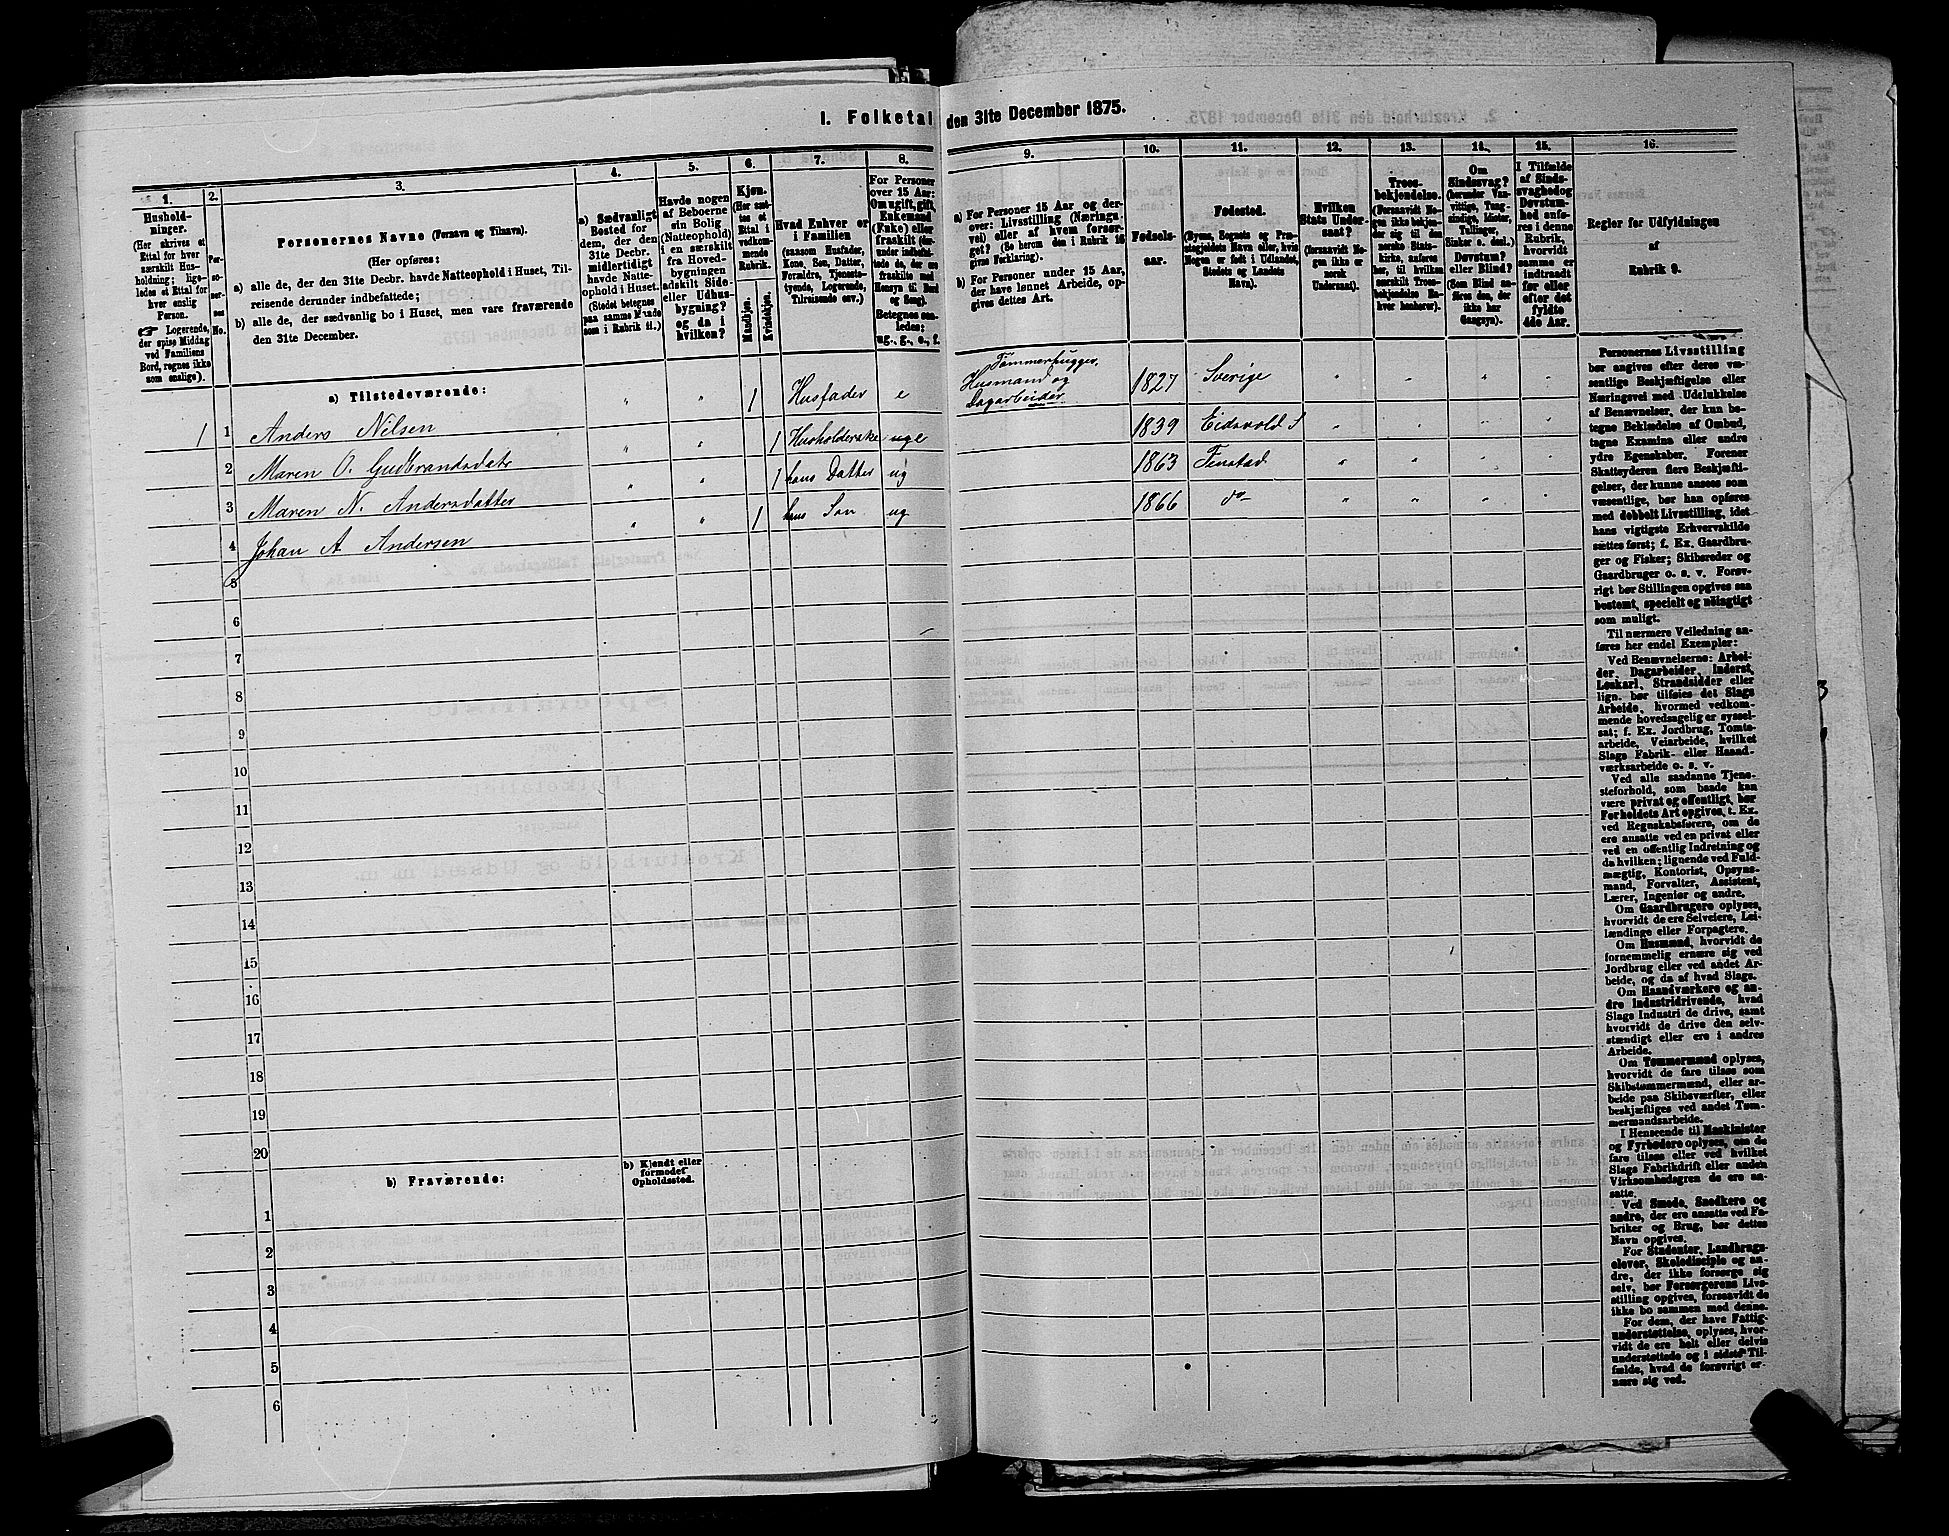 1. Folketal den 31te December 1875.
1.
Hushold-
ninger.
(Her skrives et
Ettal for hver
særskilt Hus-
holdning; lige-
ledes et Ettal for
hver enslig
Person.
☞ Logerende,
der spise Middag
ved Familiens
Bord, regnes ikke
som enslige).
2.
Per-
so-
ner-
nes
No.
3.
Personernes Navne (Fornavn og Tilnavn).
(Her opføres:
a) alle de, der den 31te Decbr. havde Natteophold i Huset, Til-
reisende derunder indbefattede;
b) alle de, der sædvanlig bo i Huset, men vare fraværende
den 31te December.
4.
a) Sædvanligt
Bosted for
dem, der den
31te Decbr.
midlertidigt
havde Natte-
ophold i Huset.
(Stedet betegnes
paa samme Maade
som i Rubrik 11.)
5.
Havde nogen
af Beboerne
sin Bolig
(Natteophold)
i en særskilt
fra Hoved-
bygningen
adskilt Side-
eller Udhus-
bygning?
og da i
hvilken?
6.
Kjøn.
(Her sæt-
tes et
Ettal i
vedkom-
mende
Rubrik.
Mandkjøn.
Kvindekjøn.
7.
Hvad Enhver er
i Familien
(saasom Husfader,
Kone, Søn, Datter,
Forældre, Tjeneste-
tyende, Logerende,
Tilreisende osv.)
8.
For Personer
over 15 Aar:
Om ugift, gift,
Enkemand
(Enke) eller
fraskilt
Betegnes saa-
ledes:
ug., g., e., f.
9.
a) For Personer 15 Aar og der-
over: Livsstilling (Nærings-
vei) eller af hvem forsør-
get? (Se herom den i Rubrik 16
givne Forklaring).
b) For Personer under 15 Aar,
der have lønnet Arbeide, op-
gives dettes Art.
10.
Fødsels-
aar.
11.
Fødested.
(Byens, Sognets og Præ-
stegjeldets Navn eller, hvis
Nogen er født i Udlandet,
Stedets og Landets
Navn).
12.
Hvilken
Stats Under-
saat?
(forsaavidt No-
gen ikke er
norsk
Undersaat).
13.
Troes-
bekjendelse.
(Forsaavidt No-
gen ikke bekjen-
der sig til den
norske Stats-
kirke, anføres
her, til hvilken
særskilt Troes-
bekjendelse En-
hver henhører).
14.
Om
Sindssvag?
(herunder Van-
vittige, Tung-
sindige, Idioter,
Tullinger,
Sinker o. desl.)
Døvstum?
eller Blind?
(Som Blind an-
føres den, der
ikke har
Gangsyn).
15.
I Tilfælde
af Sinds-
svaghed og
Døvstum-
hed anfø-
res i denne
Rubrik,
hvorvidt
samme er
indtraadt
før eller
efter det
fyldte
4de Aar.
16.
Regler for Udfyldningen
af
Rubrik 9.
a) Tilstedeværende:
1 1 Anders Nilsen " " 1 Husfader e Tømmerhugger, Husmand og Dagarbeider 1827 Sverige " " " "
2 Maren O. Gudbrandsdatr " " 1 Husholderske ugl 1839 Eidsvold S " " " "
3 Maren N. Andersdatter " " 1 hans Datter ug 1863 Fenstad " " " "
4 Johan A Andersen " " 1 hans Søn ug 1866 do " " " "
5
6
7
8
9
10
11
12
13
14
15
16
17
18
19
20
b) Fraværende:
b) Kjendt eller
formodet
Opholdssted.
1
2
3
4
5
6
Personernes Livsstilling
bør angives efter deres væ-
sentlige Beskjæftigelse eller
Næringsvei med Udelukkelse
af Benævnelser, der kun be-
tegne Beklædelse af Ombud,
tagne Examina eller andre
ydre Egenskaber. Forener
Skatteyderen flere Beskjæfti-
gelser, der kunne ansees som
væsentlige, bør han opføres
med dobbelt Livsstilling, idet
hans vigtigste Erhvervskilde
sættes først; f. Ex. Gaardbru-
ger og Fisker; Skibsreder og
Gaardbruger o. s. v. Forøv-
rigt bør Stillingen opgives saa
bestemt, specielt og nøiagtigt
som muligt.
Til nærmere Veiledning an-
føres her endel Exempler:
Ved Benævnelserne: Arbei-
der, Dagarbeider, Inderst,
Løskarl, Strandsidder eller
lign. bør tilføies det Slags
Arbeide, hvormed vedkom-
mende hovedsagelig er syssel-
sat; f. Ex. Jordbrug, Tomte-
arbeide, Veiarbeide, hvilket
Slags Fabrik- eller Haand-
værksarbeide o. s. v.
Ved alle saadanne Tjene-
steforhold, som baade kan
være privat og offentligt, bør
Forholdets Art opgives, t. Ex.
ved Regnskabsførere, om de
ere ansatte ved en privat eller
ved en offentlig Indretning og
da hvilken; lignende ved Fuld-
mægtig, Kontorist, Opsyns-
mand, Forvalter, Assistent,
Lærer, Ingeniør og andre.
Om Gaardbrugere oplyses,
hvorvidt de ere Selveiere, Lei-
lændinge eller Forpagtere.
Om Husmænd, hvorvidt de
fornemmelig ernære sig ved
Jordbrug eller ved andet Ar-
beide, og da af hvad Slags.
Om Haandværkere og an-
dre Industridrivende, hvad
Slags Industri de drive, samt
hvorvidt de drive den selv-
stændigt eller ere i andres
Arbeide.
Om Tømmermænd oplyses,
hvorvidt de fare tilsøs som
Skibstømmermænd, eller ar-
beide paa Skibsværfter, eller
beskjæftiges ved andet Tøm-
mermandsarbeide.
I Henseende til Maskinister
og Fyrbødere oplyses, om de
fare tilsøs eller ved hvilket
Slags Fabrikdrift eller anden
Virksomhedsgren de ere an-
satte.
Ved Smede, Snedkere og
andre, der ere ansatte ved Fa-
briker og Brug, bør dettes
Navn opgives.
For Studenter, Landbrugs-
elever, Skoledisciple og an-
dre, der ikke forsørge sig
selv, bør Forsørgerens Livs-
stilling opgives, forsaavidt de
ikke bo sammen med denne.
For dem, der have Fattig-
understøttelse, oplyses, hvor-
vidt de ere helt eller delvis
understøttede og i sidste Til-
fælde, hvad de forøvrigt er-
nære sig ved.